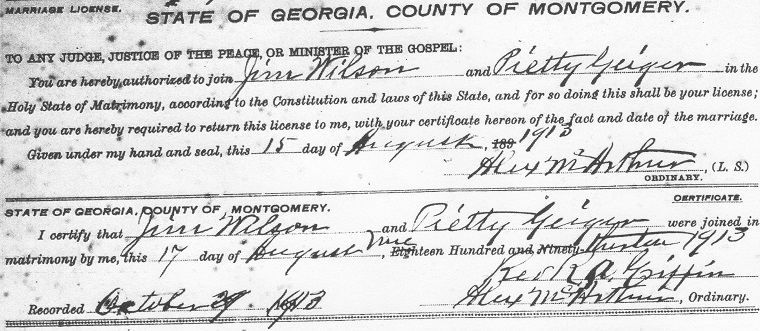 MARRIAGE LICENSE.
STATE OF GEORGIA, COUNTY OF MONTGOMERY.
TO ANY JUDGE, JUSTICE OF THE PEACE, OR MINISTER OF THE GOSPEL:
You are hereby authorized to join Jim Wilson and Pietty Geiger in the
Holy State of Matrimony, according to the Constitution and laws of this State, and for so doing this shall be your license;
and you are hereby required to return this license to me, with your certificate hereon of the fact and date of the marriage.
Given under my hand and seal, this 15 day of August 189 1913
Alex McArthur, (L. S.)
ORDINARY.
CERTIFICATE.
STATE OF GEORGIA, COUNTY OF MONTGOMERY.
I certify that Jim Wilson and Pietty Geiger were joined in
matrimony by me, this 17 day of August Nine, Eighteen Hundred and Ninety- 1913
Rev A. Griffin
Recorded October 29 1913 Alex McArthur, Ordinary.